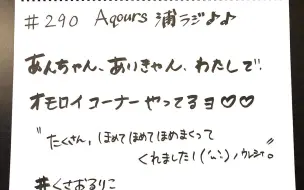 #290 Aqours 浦ラジ♪♪
あんちゃん、ありきゃん、わたしで!
オモロイコーナーやってるヨ♡♡
"たくさん、ほめてほめてほめまくって
くれました!('ω')ノウレシャ。
#くさおるりこ